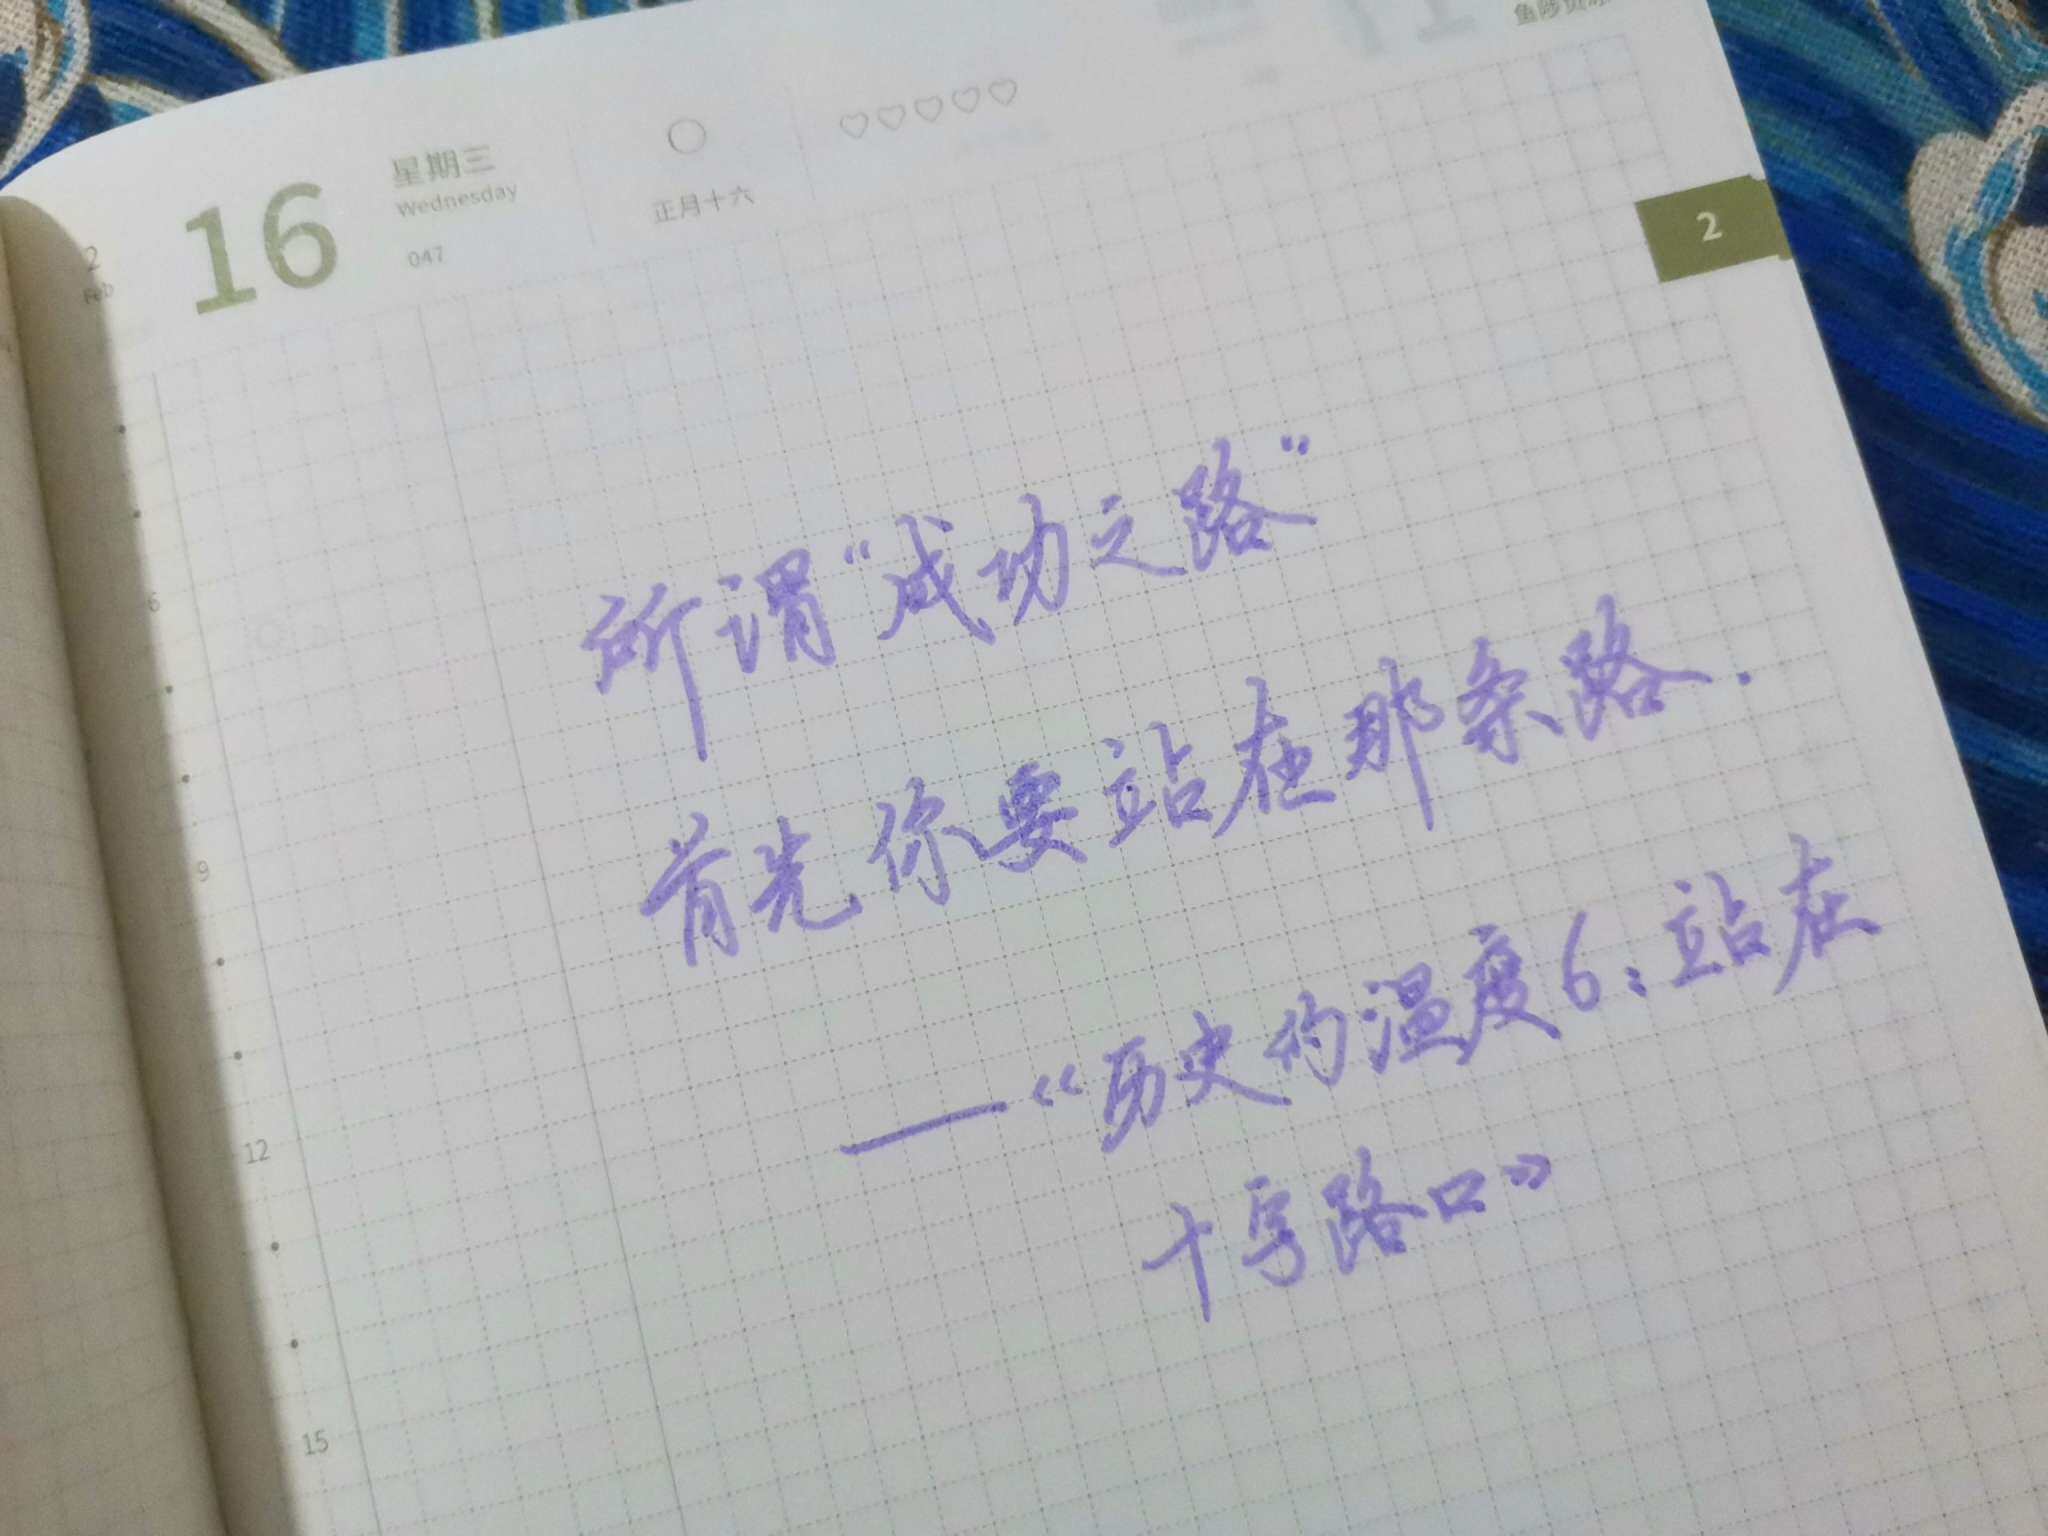 16
星期三
Wednesday
047
正月十六
2
Feb
2
所谓“成功之路”
首先你要站在那条路.
——《历史的温度6:站在
十字路口》
6
9
12
15